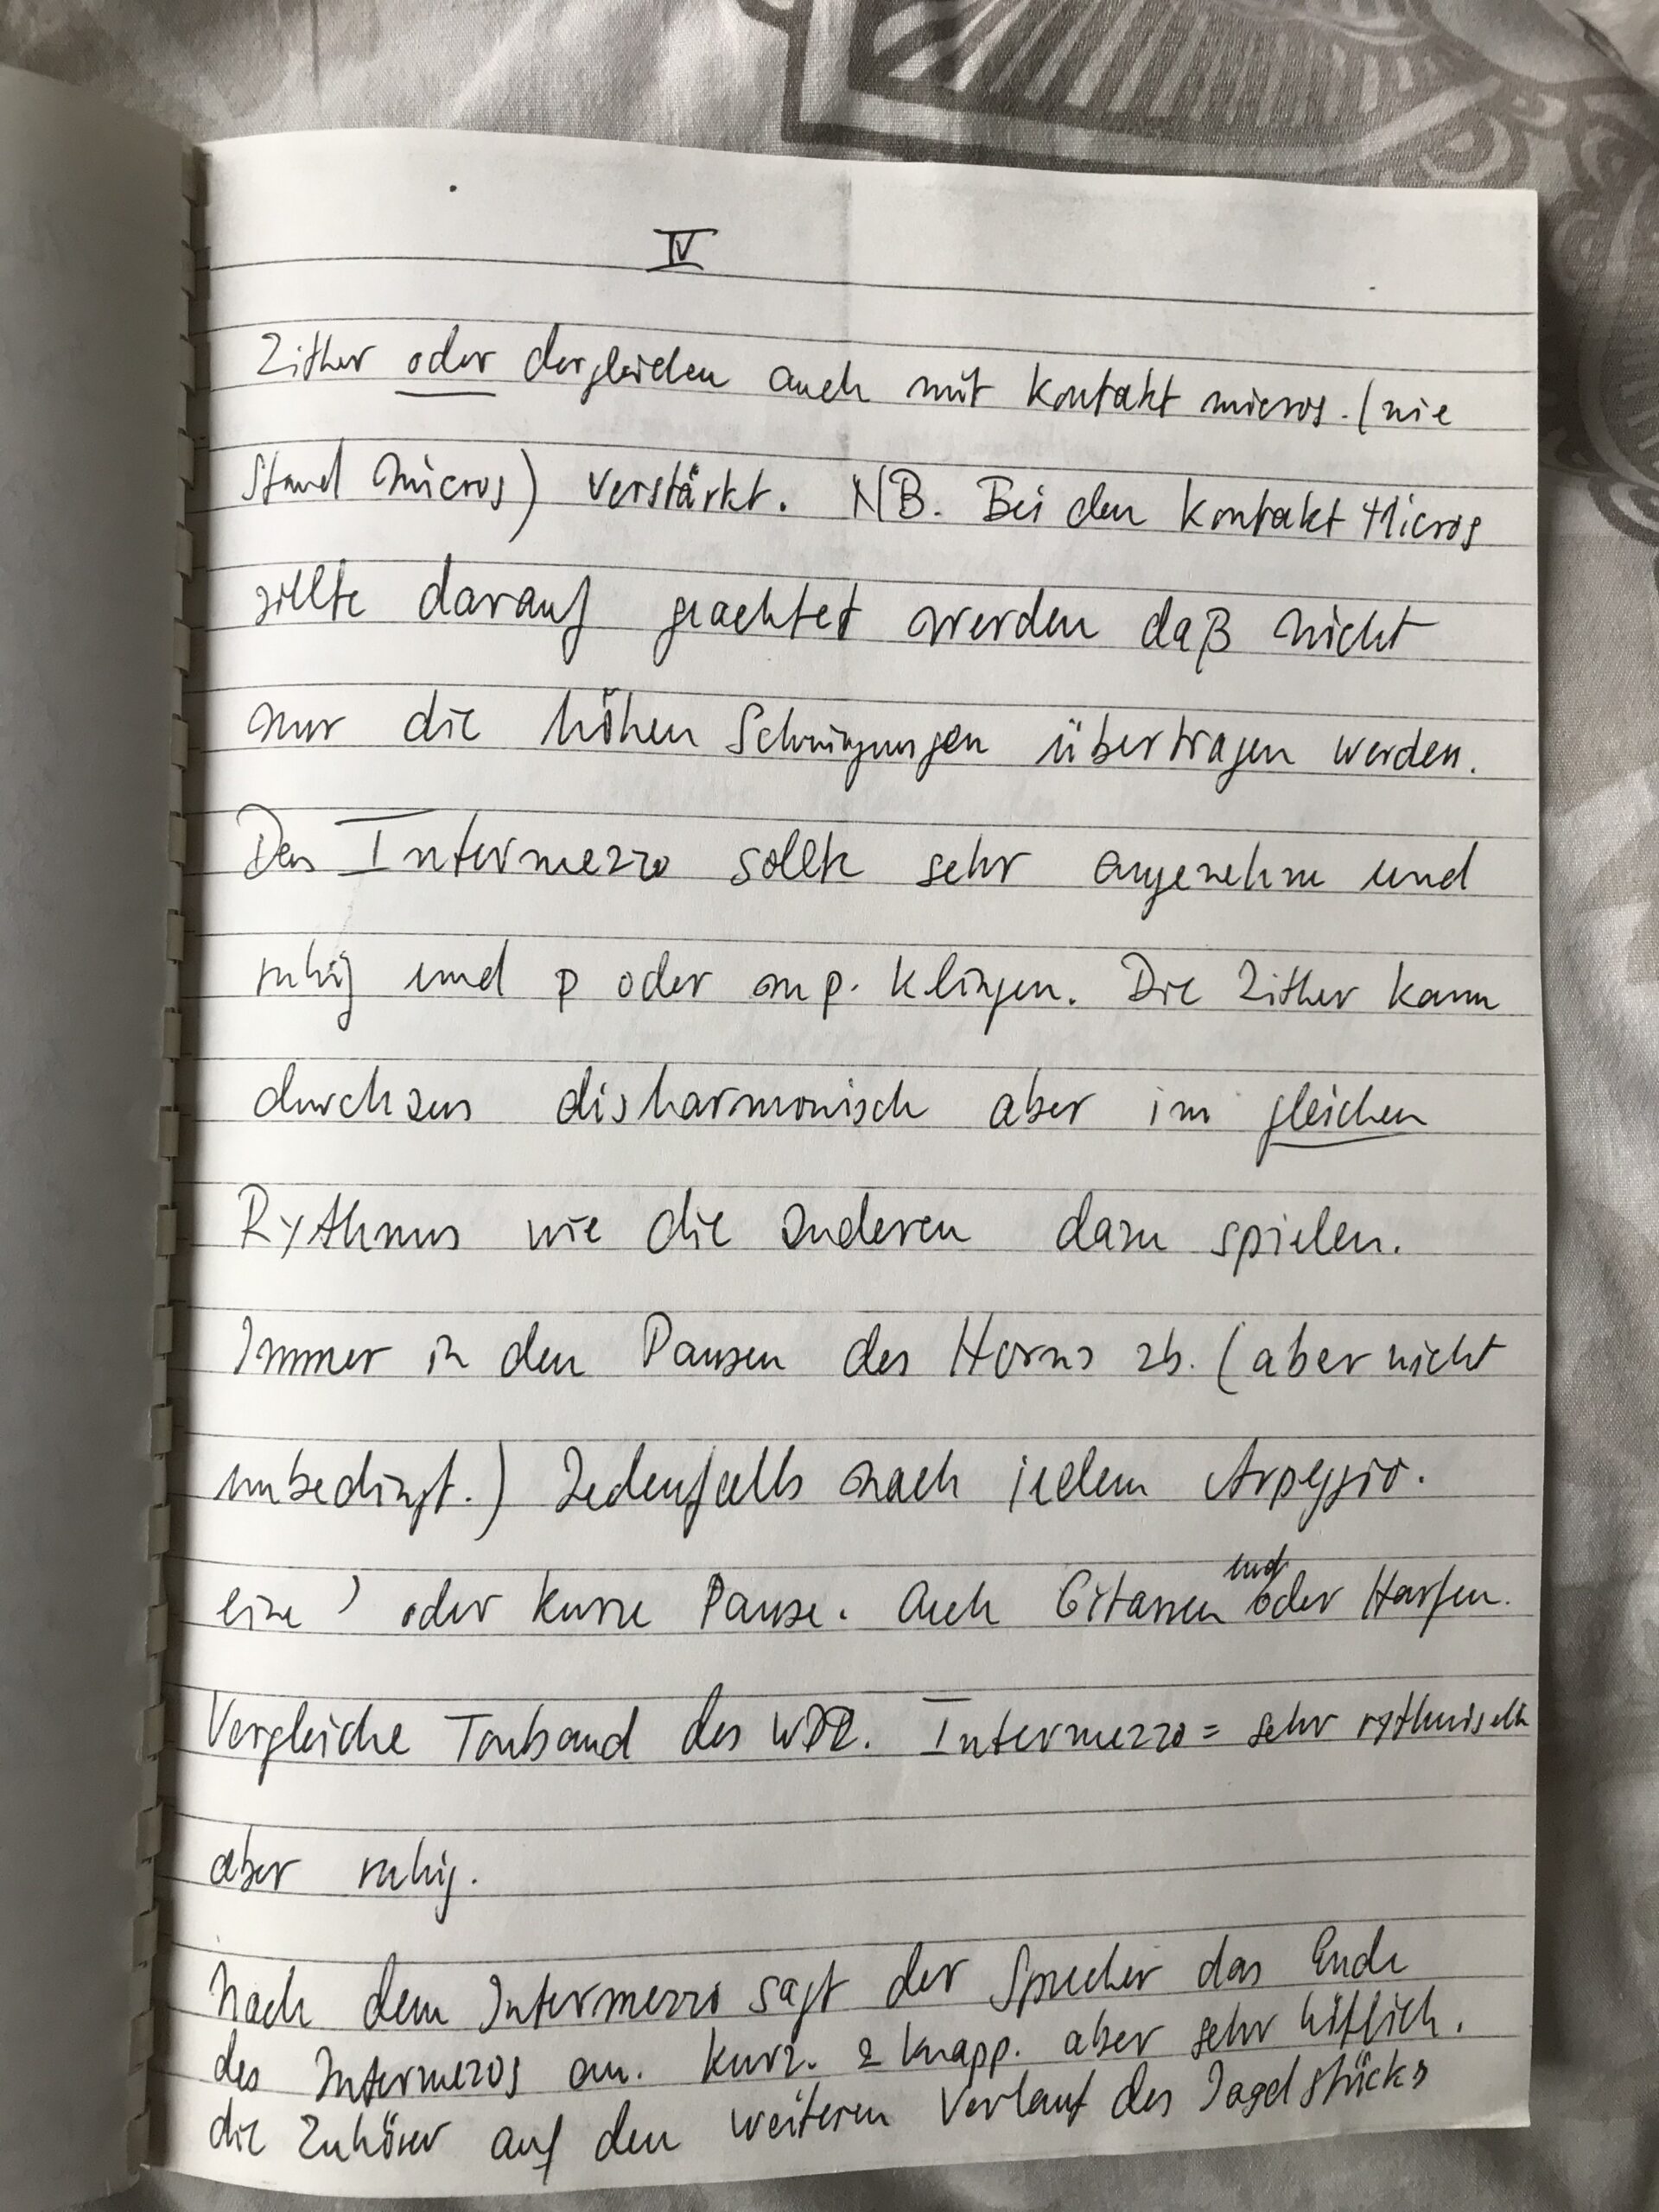 IV
Zither oder dergleichen auch mit Kontakt micros. (wie
Stand Micros) verstärkt. NB. Bei den Kontakt Micros
sollte darauf geachtet werden daß nicht
nur die höhen Schwingungen übertragen werden.
Das Intermezzo sollte sehr angenehm und
ruhig und p oder mp. klingen. Die Zither kann
durchaus disharmonisch aber im gleichen
Rythmus wie die anderen dazu spielen.
Immer in den Pausen des Horns zb. (aber nicht
unbedingt.) Jedenfalls nach jedem Arpeggio.
eine ) oder kurze Pause. Auch Gitarren und oder Harfen.
Vergleiche Tonband des WDR. Intermezzo = sehr rythmisch
aber ruhig.
Nach dem Intermezzo sagt der Sprecher das Ende
des Intermezos an. kurz. & knapp. aber sehr höflich.
die Zuhörer auf den weiteren Verlauf des Jagdstücks